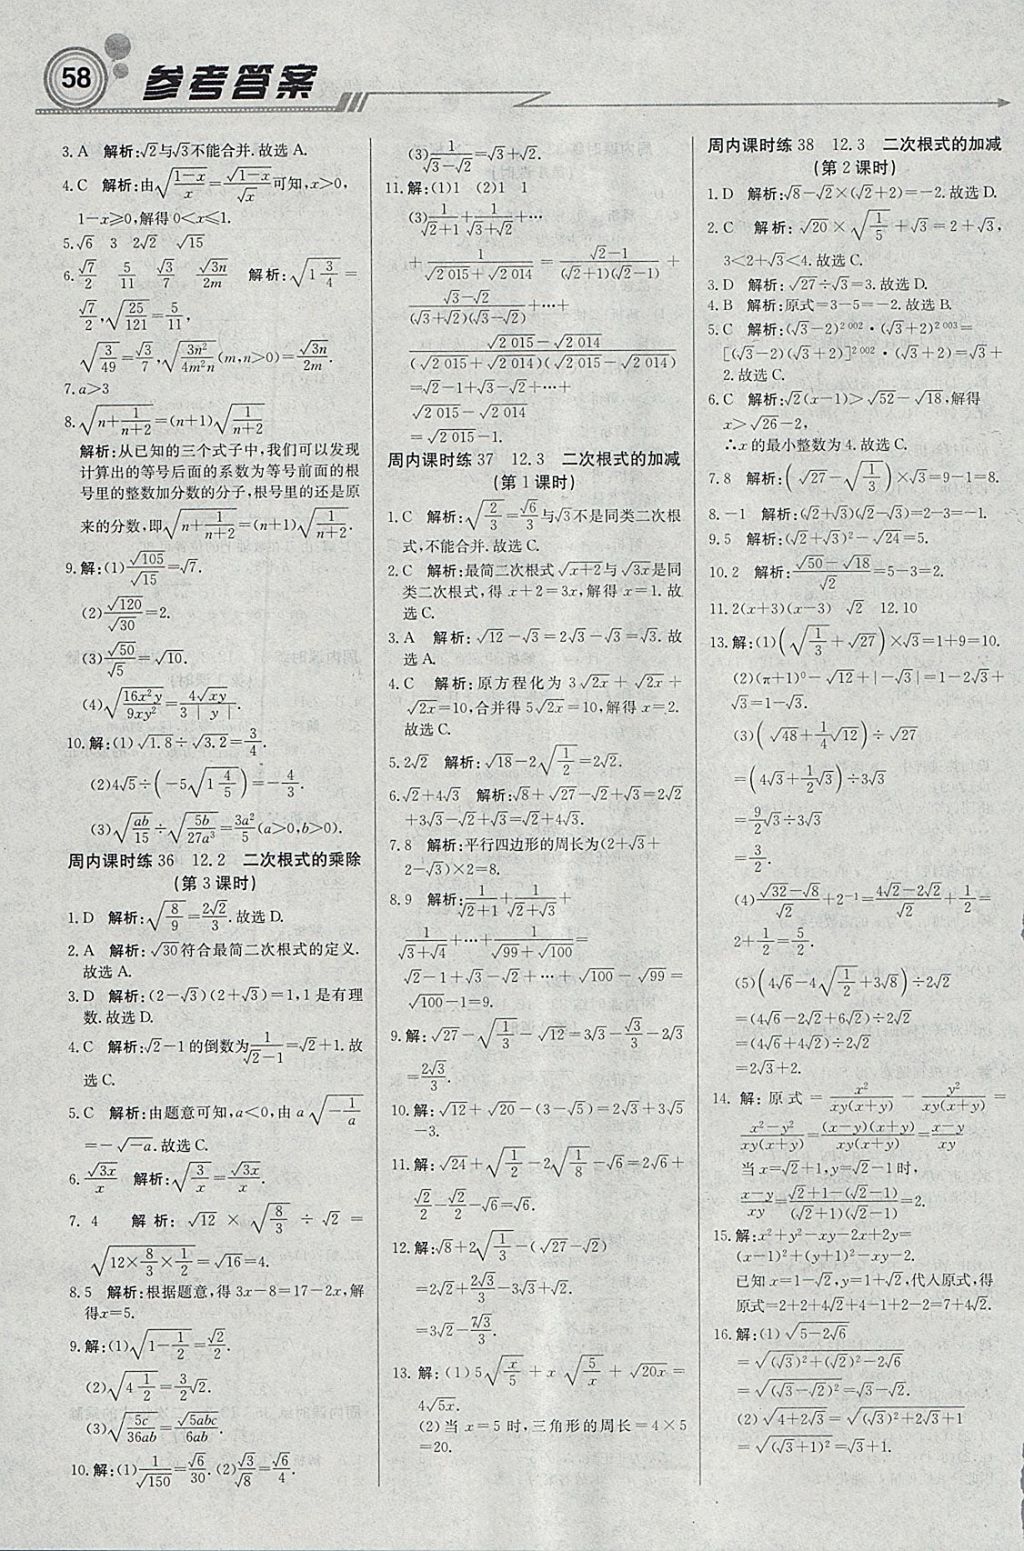 58 参考答案
3. A 解析:√2与√3不能合并.故选 A.
4. C 解析:由√((1-x)/x)=√(1-x)/√x可知,x>0,
1-x≥0,解得 0<x≤1.
5.√6 3 2√2 √15
6. √7/2 5/11 √3/7 √(3n)/2m 解析:√(1 3/4)=
√7/2,√(25/121)=5/11,
√(3/49)=√3/7,√(3n²/4m²n)(m,n>0)=√(3n)/2m.
7. a>3
8. √(n+1/(n+2))=(n+1)√(1/(n+2))
解析:从已知的三个式子中,我们可以发现
计算出的等号后面的系数为等号前面的根
号里的整数加分数的分子,根号里的还是原
来的分数,即√(n+1/(n+2))=(n+1)√(1/(n+2)).
9.解:(1)√105/√15=√7.
(2)√120/√30=2.
(3)√50/√5=√10.
(4)√(16x²y/9xy²)=4√(xy)/3|y|.
10.解:(1)√1.8÷√3.2=3/4.
(2)4√5÷(-5√(1 4/5))=-4/3.
(3)√(ab/15)÷√(5b/27a³)=3a²/5(a>0,b>0).
周内课时练 36 12.2 二次根式的乘除
(第 3 课时)
1. D 解析:√(8/9)=2√2/3.故选 D.
2. A 解析:√30符合最简二次根式的定义.
故选 A.
3. D 解析:(2-√3)(2+√3)=1,1是有理
数.故选 D.
4. C 解析:√2-1的倒数为1/(√2-1)=√2+1.故
选 C.
5. C 解析:由题意可知,a<0,由 a√(-1/a)
=-√(-a).故选 C.
6. √(3x)/x 解析:√(3/x)=√(3x)/x.
7. 4 解析:√12×√(8/3)÷√2=
√(12×8/3×1/2)=√16=4.
8. 5 解析:根据题意,得 3x-8=17-2x,解
得x=5.
9.解:(1)√(1-1/2)=√2/2.
(2)√(4 1/2)=3/2√2.
(3)√(5c/36ab)=√(5abc)/6ab.
10.解:(1)1/√150=√6/30.(2)√3/√8=√6/4.
(3)1/(√3-√2)=√3+√2.
11.解:(1)1 (2)1 1
(3)1/(√2+1)+1/(√3+√2)+…
+1/(√2 015+√2 014)=(√2-1)/((√2+1)(√2-1))+
(√3-√2)/((√3+√2)(√3-√2))+…+
(√2 015-√2 014)/((√2 015+√2 014)(√2 015-√2 014))
=√2-1+√3-√2+…+
√2 015-√2 014
=√2 015-1.
周内课时练 37 12.3 二次根式的加减
(第 1 课时)
1. C 解析:√(2/3)=√6/3与√3不是同类二次根
式,不能合并.故选 C.
2. C 解析:最简二次根式√(x+2)与√(3x)是同
类二次根式,得 x+2=3x,解得 x=1.故
选 C.
3. A 解析:√12-√3=2√3-√3=√3.故
选 A.
4. C 解析:原方程化为 3√(2x)+√(2x)+
√(2x)=10,合并得 5√(2x)=10,解得 x=2.
故选 C.
5. 2√2 解析:√18-2√(1/2)=2√2.
6.√2+4√3 解析:√8+√27-√2+√3=2√2
+3√3-√2+√3=√2+4√3.
7. 8 解析:平行四边形的周长为(2+√3+
2-√3)×2=8.
8. 9 解析:1/(√2+1)+1/(√2+√3)+
1/(√3+√4)+…+1/(√99+√100)=
√2-1+√3-√2+…+√100-√99=
√100-1=9.
9.解:√27-√(1/3)-√12=3√3-√3/3-2√3
=2√3/3.
10.解:√12+√20-(3-√5)=2√3+3√5
-3.
11.解:√24+√(1/2)-2√(1/8)-√6=2√6+
√2/2-√2/2-√6=√6.
12.解:√8+2√(1/3)-(√27-√2)
=2√2+2√3/3-3√3+√2
=3√2-7√3/3.
13.解:(1)5√(x/5)+x√(5/x)+√(20x)=
4√(5x).
(2)当 x=5 时,三角形的周长=4×5
=20.
周内课时练 38 12.3 二次根式的加减
(第 2 课时)
1. D 解析:√8-√2×(√2+2)=-2.故选 D.
2. C 解析:√20×√(1/5)+√3=2+√3,
3<2+√3<4.故选 C.
3. D 解析:√27÷√3=3.故选 D.
4. B 解析:原式=3-5=-2.故选 B.
5. C 解析:(√3-2)^2 002·(√3+2)^2 003=
[(√3-2)(√3+2)]^2 002·(√3+2)=√3+
2.故选 C.
6. C 解析:√2(x-1)>√52-√18,解得
x>√26-2,
∴x的最小整数为 4.故选 C.
7. 8 解析:(√27-√(1/3))×√3=9-1=8.
8.-1 解析:(√2+√3)(√2-√3)=2-3=-1.
9. 5 解析:(√2+√3)²-√24=5.
10. 2 解析:(√50-√18)/√2=5-3=2.
11. 2(x+3)(x-3) √2 12. 10
13.解:(1)(√(1/3)+√27)×√3=1+9=10.
(2)(π+1)⁰-√12+|-√3|=1-2√3+
√3=1-√3.
(3)(√48+1/4√12)÷√27
=(4√3+1/2√3)÷3√3
=9/2√3÷3√3
=3/2.
(4)(√32-√8)/√2+2⁻¹=(4√2-2√2)/√2+1/2=
2+1/2=5/2.
(5)(4√6-4√(1/2)+3√8)÷2√2
=(4√6-2√2+6√2)÷2√2
=(4√6+4√2)÷2√2
=2√3+2.
14.解:原式=x²/(xy(x+y))-y²/(xy(x+y))=
(x²-y²)/(xy(x+y))=(x-y)(x+y)/(xy(x+y))=(x-y)/xy
当 x=√2+1,y=√2-1时,
(x-y)/xy=(√2+1-(√2-1))/((√2+1)(√2-1))=2.
15.解:x²+y²-xy-2x+2y=
(x-1)²+(y+1)²-xy-2.
已知 x=1-√2,y=1+√2,代人原式,得
原式=2+2+4√2+4-1+2-2=7+4√2.
16.解:(1)√(5-2√6)
=√((√3)²+(√2)²-2√6)
=√((√3-√2)²)=√3-√2.
(2)√(4+2√3)=√((√3)²+2√3+1)
=√((√3+1)²)=√3+1.